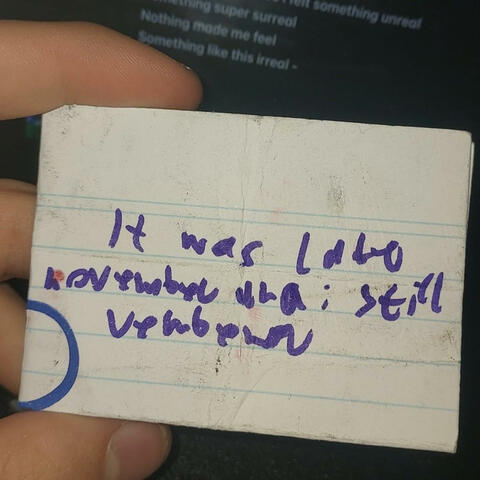 I felt something unreal
something super surreal
Nothing made me feel
Something like this irreal -
It was late
november and i still
remember